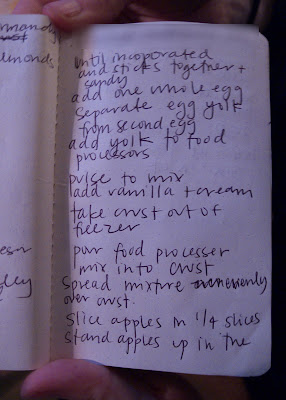 almonds
until incorporated
and sticks together +
sandy
add one whole egg
separate egg yolk
from second egg
add yolk to food
processors
pulse to mix
add vanilla + cream
take crust out of
freezer
pour food processer
mix into crust
spread mixture evenly
over crust.
slice apples in 1/4 slices
stand apples up in the